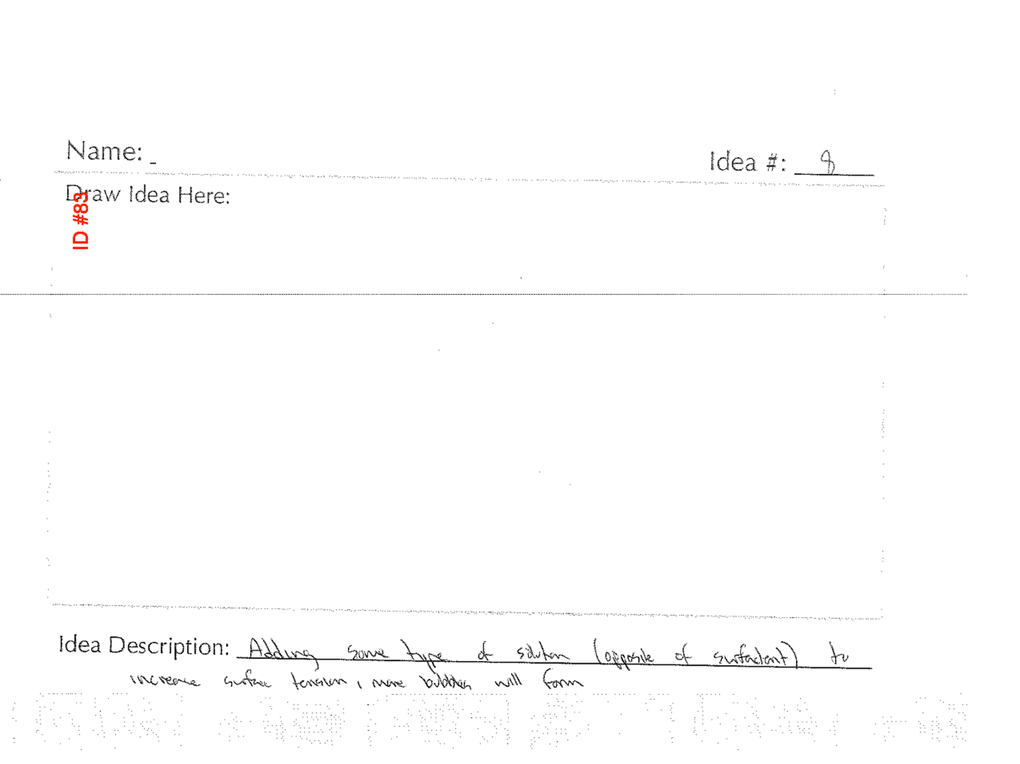 Name: -
Idea #: 8
Draw Idea Here:
ID #83
Idea Description: Adding some type of solution (opposite of surfactant) to
increase surface tension, more bubbles will form